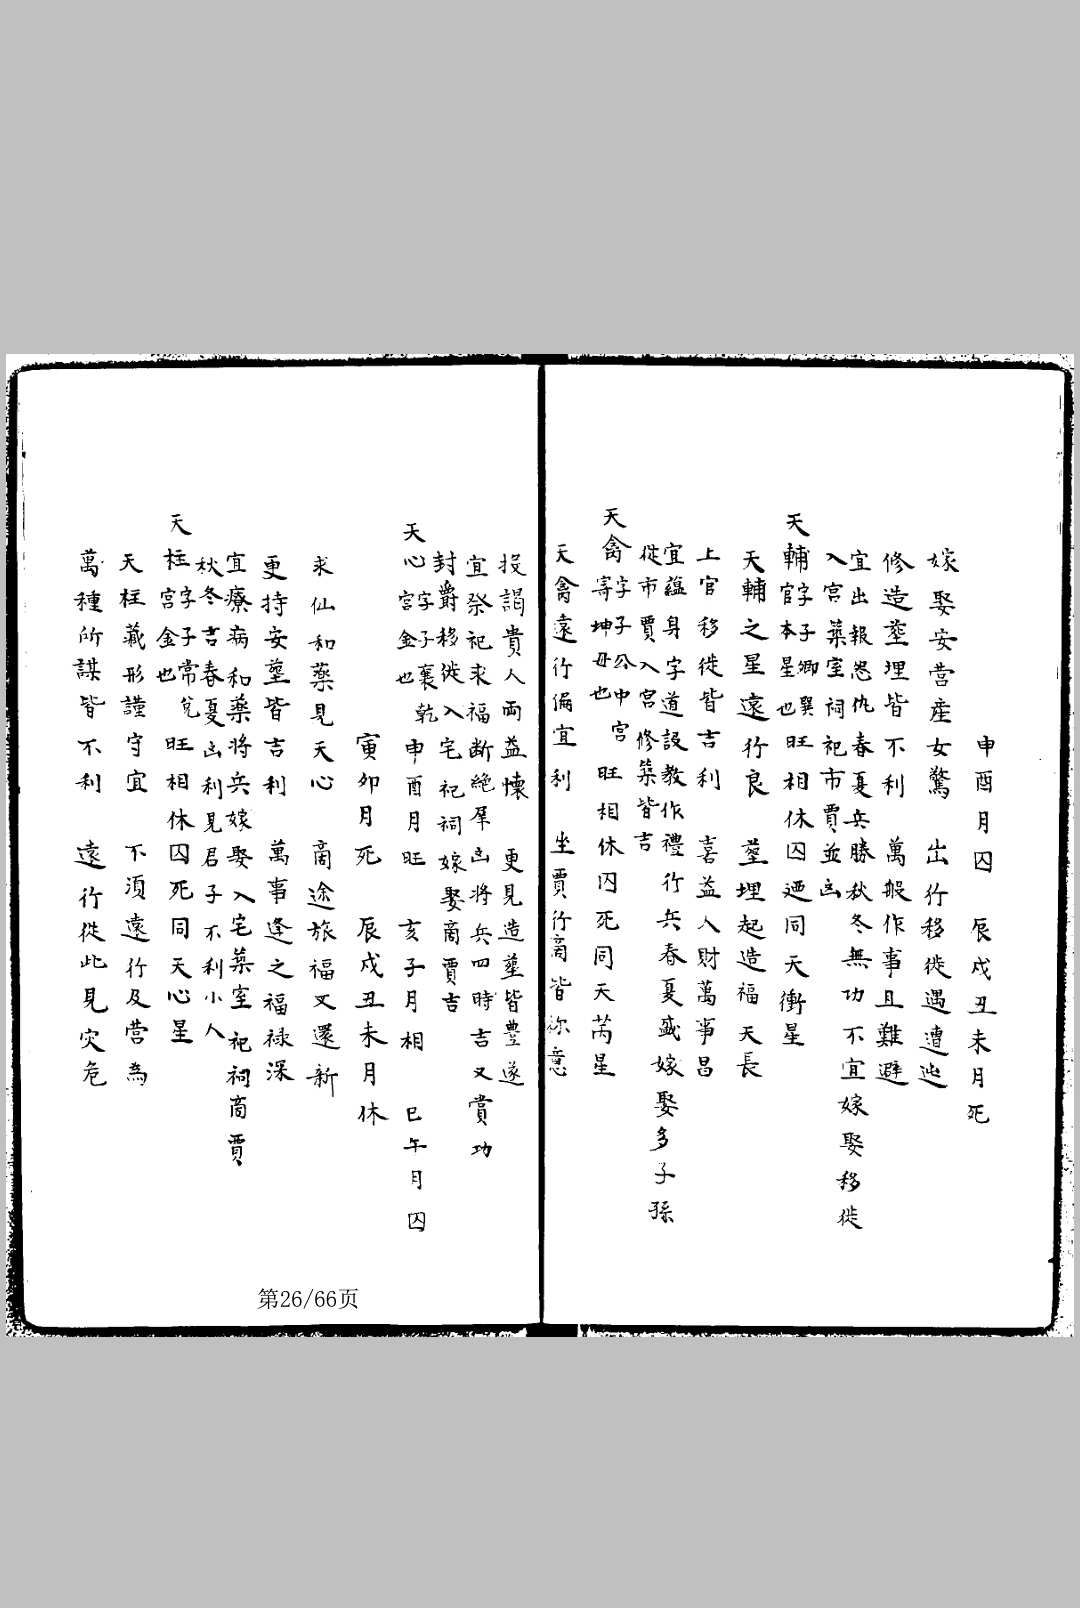 申酉月囚　辰戌丑未月死
嫁娶安营産女驚　出行移徙遇遭迍
修造塟埋皆不利　萬般作事且難避
宜出報怨仇春夏兵勝秋冬無功不宜嫁娶移徙
入宮築室祠祀市賈並凶
天輔字子卿巽
官本星也旺相休囚廼同天衝星
天輔之星遠行良　塟埋起造福天長
上官移徙皆吉利　喜益人財萬事昌
宜蘊身字道設教作禮行兵春夏盛嫁娶多子孫
徙市賈入宮修築皆吉
天禽字子公中宮
寄坤毋也旺相休囚死同天芮星
天禽遠行偏宜利　坐賈行商皆祢意
投謁貴人両益懐　更見造塟皆豊遂
宜祭祀求福断絶羣凶将兵四時吉又賞功
封爵移徙入宅祀祠嫁娶商賈吉
天心字子襄乾
宮金也申酉月旺　亥子月相　巳午月囚
寅卯月死　辰戌丑未月休
求仙和藥見天心　商途旅福又還新
更持安塟皆吉利　萬事逢之福禄深
宜療病和藥将兵嫁娶入宅築室祀祠商賈
秋冬吉春夏凶利見君子不利小人
天柱字子常兌
宮金也旺相休囚死同天心星
天柱藏形謹守宜　不湏遠行及营為
萬種所謀皆不利　遠行従此見灾危
第26/66页